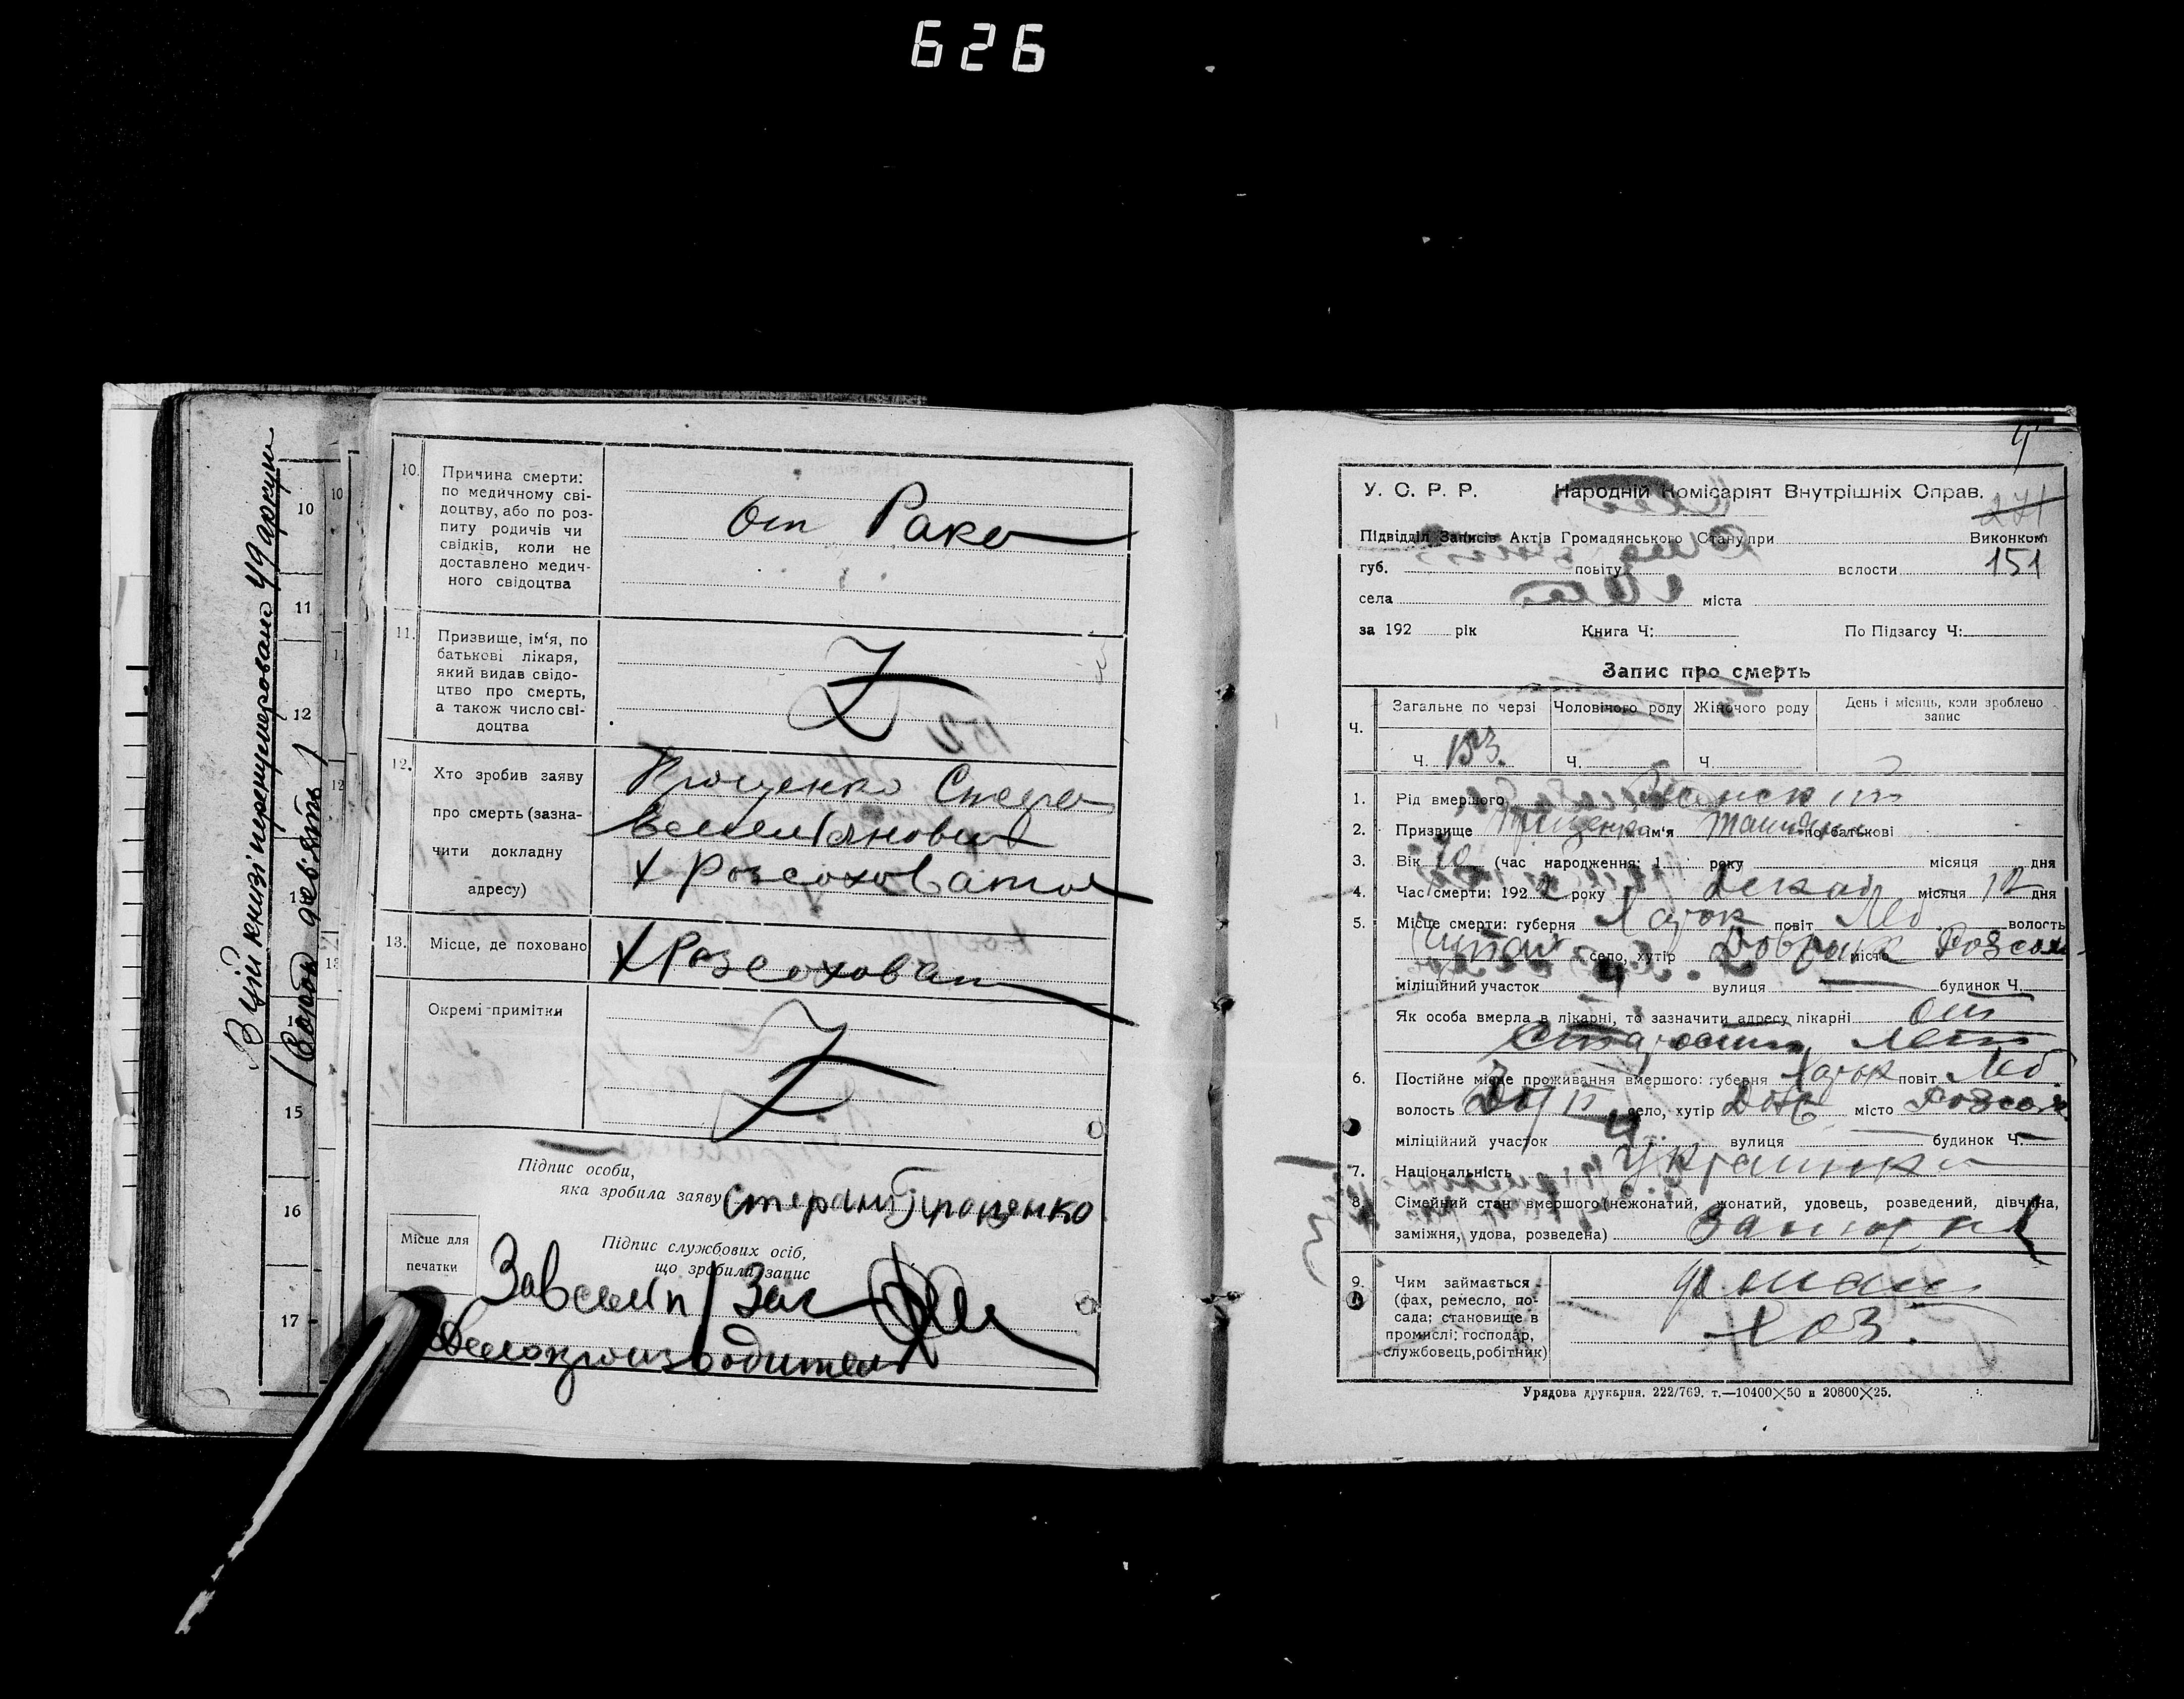 626
В цій книзі перенумеровано 49 аркуш
/Сорок дев'ять/
10
11
12
15
16
17
10.
Причина смерти:
по медичному сві-
доцтву, або по роз-
питу родичів чи
свідків, коли не
доставлено медич-
ного свідоцтва
от Рака
11.
Призвище, ім'я, по
батькові лікаря,
який видав свідо-
цтво про смерть,
а також число сві-
доцтва
Z
12.
Хто зробив заяву
про смерть (зазна-
чити докладну
адресу)
Проценко Стефа
х Розсоховатой
13.
Місце, де поховано
х Розсоховат
Окремі примітки
Z
Підпис особи,
яка зробила заяву
Стефан Проценко
Місце для
печатки
Підпис службових осіб,
що зробили запис
Делопроизводитель
У. С. Р. Р. Народній Комісаріят Внутрішніх Справ.
271
Підвідділ Записів Актів Громадянського Стану при Виконком
губ. повіту волости 151
села міста
за 192 рік Книга Ч: По Підзагсу Ч:
Запис про смерть
Ч.
Загальне по черзі
Чоловічого роду
Жіночого роду
День і місяць, коли зроблено
запис
Ч. 153.
Ч.
Ч.
1. Рід вмершого Женский
2. Призвище ім'я по батькові
3. Вік 70 (час народження: 1 року місяця дня
4. Час смерти: 1922 року Декаб місяця 12 дня
5. Місце смерти: губерня Харк повіт Леб волость
село, хутір місто Розсох
міліційний участок 4 вулиця будинок Ч.
Як особа вмерла в лікарні, то зазначити адресу лікарні от
старости лет
6. Постійне місце проживання вмершого: губерня Харк повіт Леб
волость село, хутір місто Розсох
міліційний участок 4 вулиця будинок Ч.
7. Національність Украинка
8. Сімейний стан вмершого (нежонатий, жонатий, удовець, розведений, дівчина,
заміжня, удова, розведена) Замужн
9. Чим займається
(фах, ремесло, по-
сада; становище в
промислі: господар,
службовець, робітник)
домаш
хоз.
Урядова друкарня. 222/769. т.—10400×50 и 20800×25.